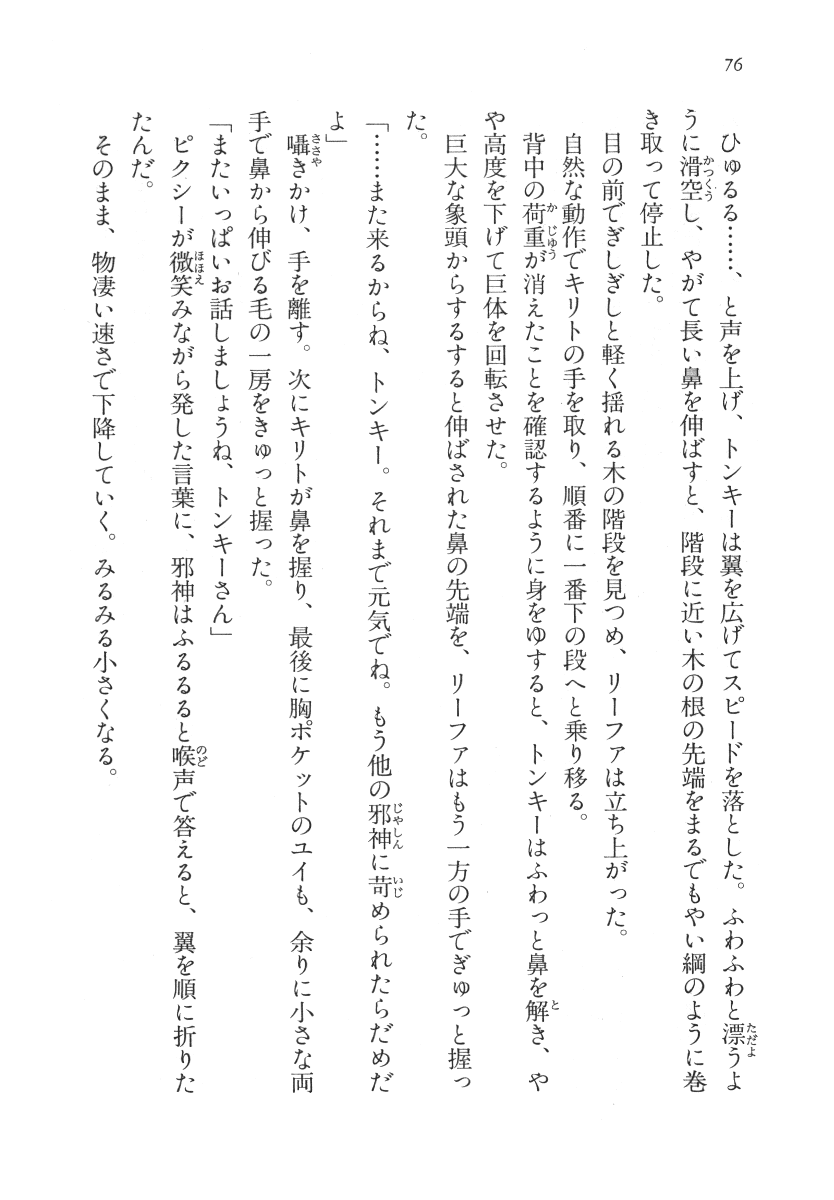 76
ひゅるる……、と声を上げ、トンキーは翼を広げてスピードを落とした。ふわふわと漂うよ
うに滑空し、やがて長い鼻を伸ばすと、階段に近い木の根の先端をまるでもやい綱のように巻
き取って停止した。
目の前でぎしぎしと軽く揺れる木の階段を見つめ、リーファは立ち上がった。
自然な動作でキリトの手を取り、順番に一番下の段へと乗り移る。
背中の荷重が消えたことを確認するように身をゆすると、トンキーはふわっと鼻を解き、や
や高度を下げて巨体を回転させた。
巨大な象頭からするすると伸ばされた鼻の先端を、リーファはもう一方の手でぎゅっと握っ
た。
「……また来るからね、トンキー。それまで元気でね。もう他の邪神に苛められたらだめだ
よ」
囁きかけ、手を離す。次にキリトが鼻を握り、最後に胸ポケットのユイも、余りに小さな両
手で鼻から伸びる毛の一房をきゅっと握った。
「またいっぱいお話しましょうね、トンキーさん」
ピクシーが微笑みながら発した言葉に、邪神はふるるると喉声で答えると、翼を順に折りた
たんだ。
そのまま、物凄い速さで下降していく。みるみる小さくなる。